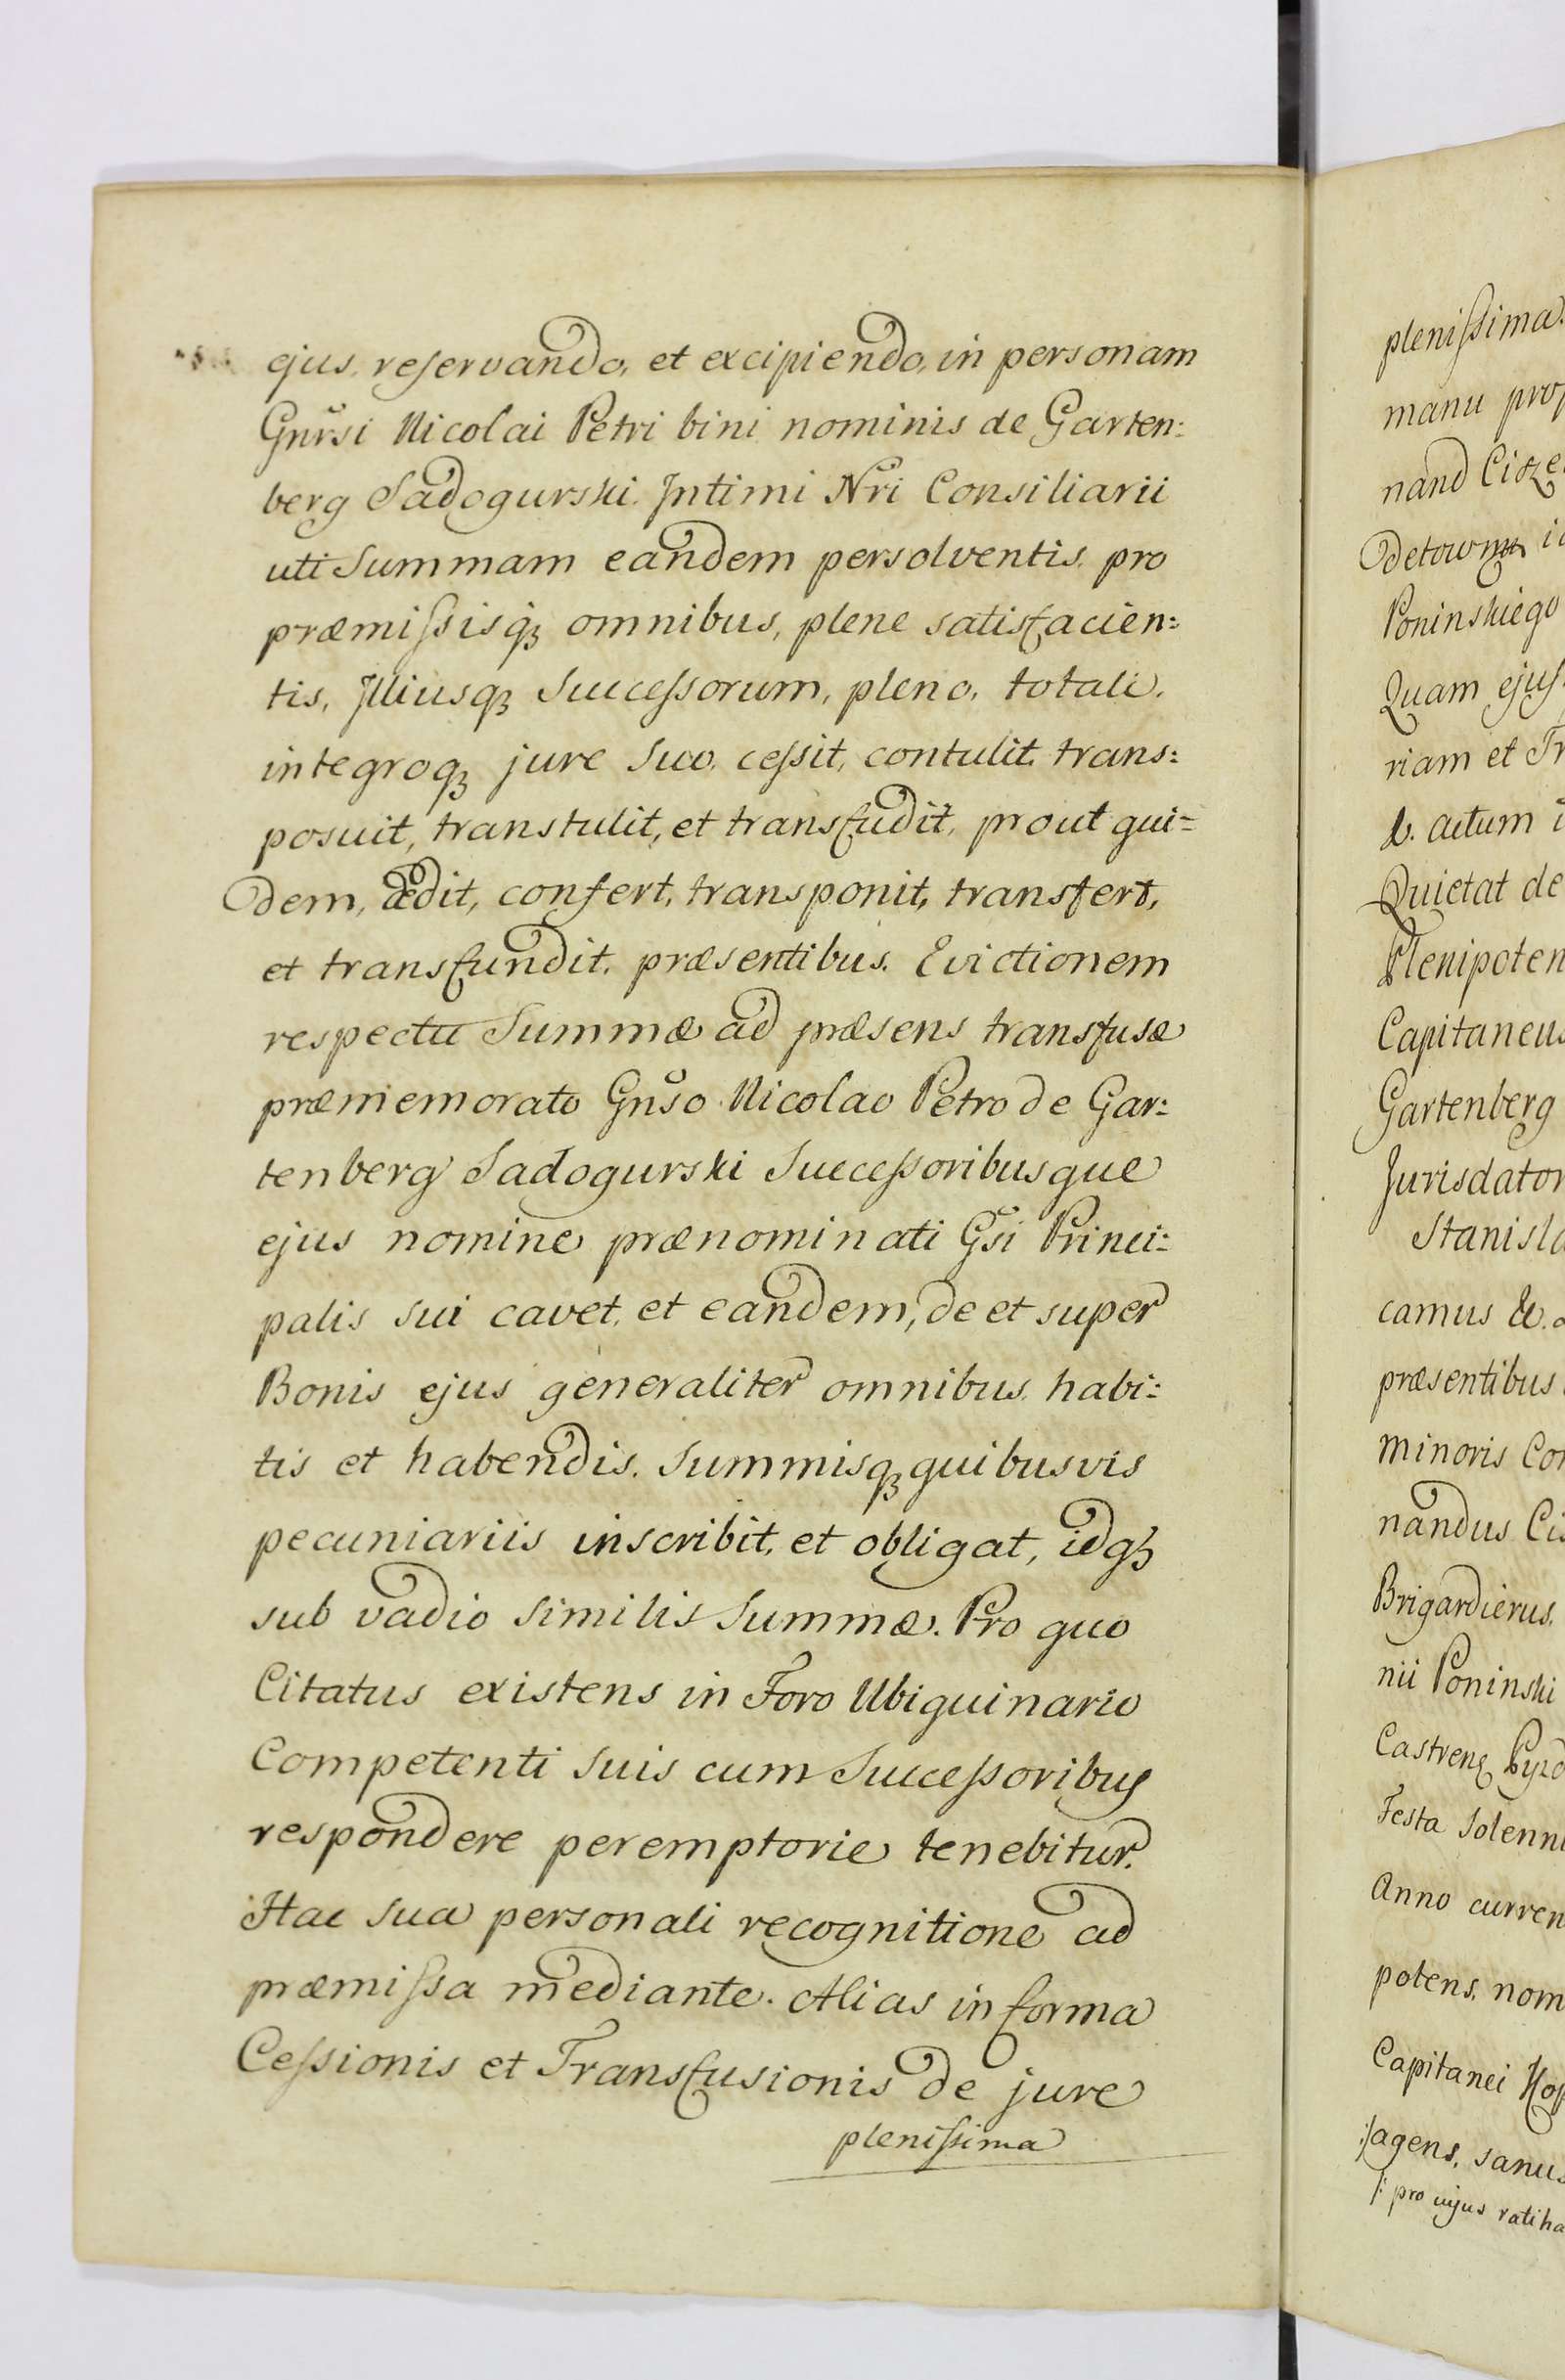 ejus, reservando, et excipiendo, in personam
Gnrsi Nicolai Petri bini nominis de Garten:
berg Sadogurski. Intimi Nri Consiliarii
uti Summam eandem persolventis, pro
præmissisq; omnibus, plene satisfacien:
tis, Illiusq; Successorum, pleno, totali,
integroq; jure Suo, cessit, contulit, trans:
posuit, transtulit, et transfudit, prout qui=
dem, cedit, confert, transponit, transfert,
et transfundit, præsentibus. Evictionem
respectu Summæ ad præsens transfusæ
præmemorato Gnso Nicolao Petro de Gar:
tenberg Sadogurski Successoribusque
ejus nomine prænominati Gsi Princi:
palis sui cavet, et eandem, de et super
Bonis ejus generaliter omnibus, habi:
tis et habendis, Summisq; quibusvis
pecuniariis inscribit, et obligat, idq;
sub vadio similis Summæ. Pro quo
Citatus existens in Foro Ubiquinario
Competenti suis cum Successoribus
respondere peremptorie tenebitur.
Hac sua personali recognitione ad
præmissa mediante. Alias in forma
Cessionis et Transfusionis de jure
plenissima
plenissima
manu
nand
Poninskiego
Quam
riam et
&. actum
Quietat de
Capitaneus
Gartenberg
camus &.
præsentibus
minoris
nandus
Brigardierus.
nii Poninski
Festa
Anno
potens, nom
Capitanei
agens, sanus
pro cujus